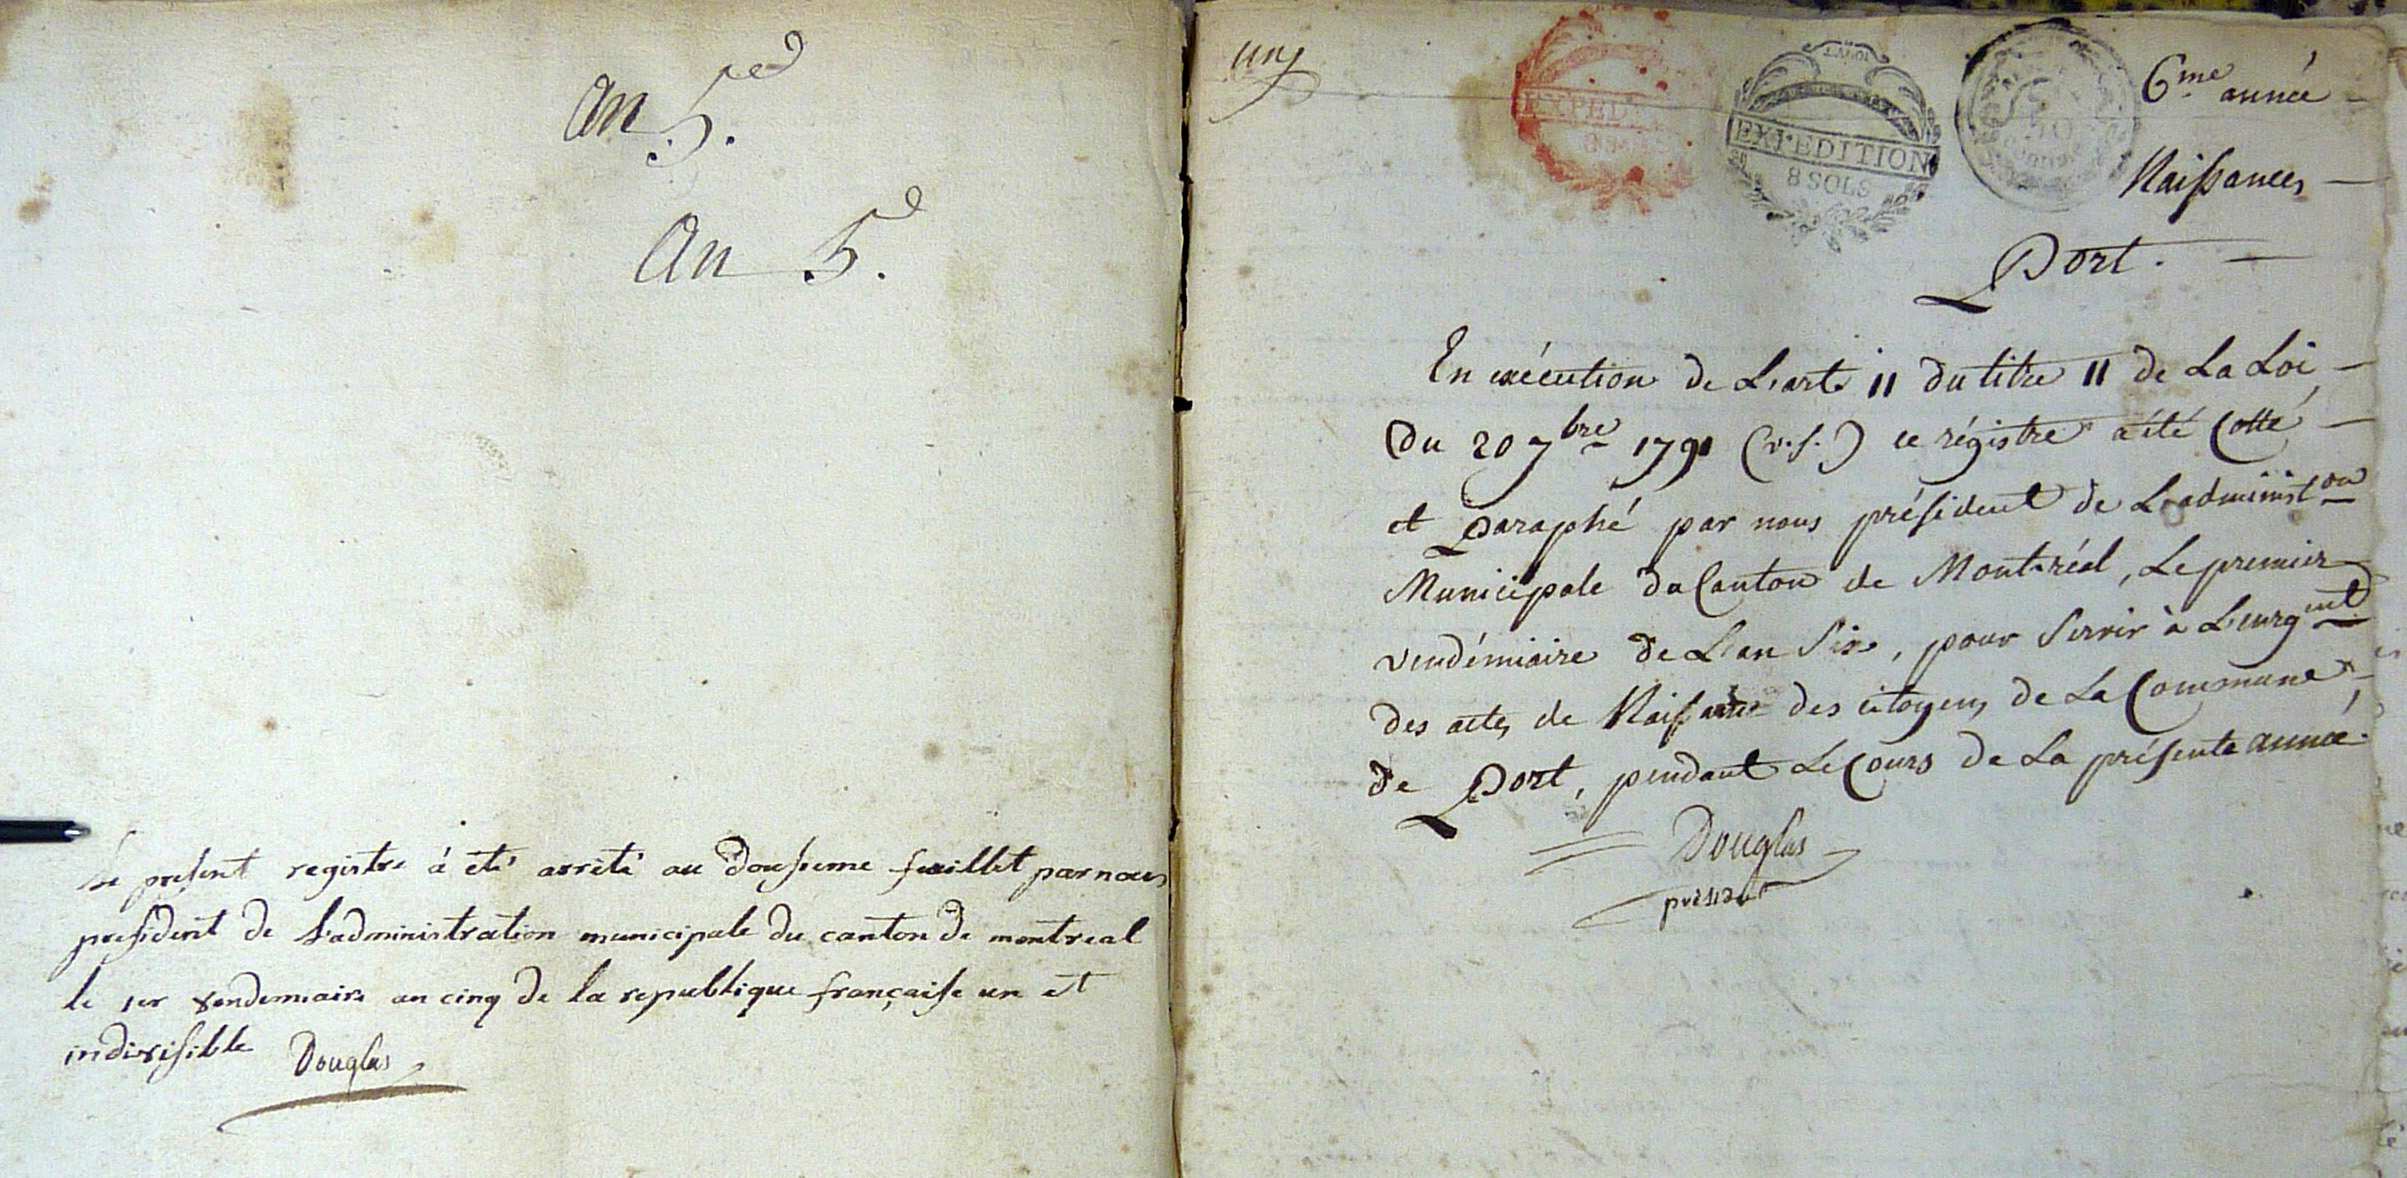 An 5e
An 5e
Le present registre à été arrêté au dousieme feuillet par nous
president de l'administration municipale du canton de montreal
le 1er vendemiaire an cinq de la republique française une et
indivisible Douglas
un
EXPEDITION
8 SOLS
EXPEDITION
8 SOLS
6me année
Naissances
Port.
En exécution de L'art. 11 du titre 11 de La Loi
du 20 7bre 1791 (v.s.) ce régistre a été Cotté
et paraphé par nous président de L'administon
Municipale du Canton de Montréal, Le premier
vendémiaire de L'an Six, pour Servir à L'enrgmt
des actes de Naissances des citoyens de La Commune
de Port, pendant Le Cours de La présente année.
Douglas
président